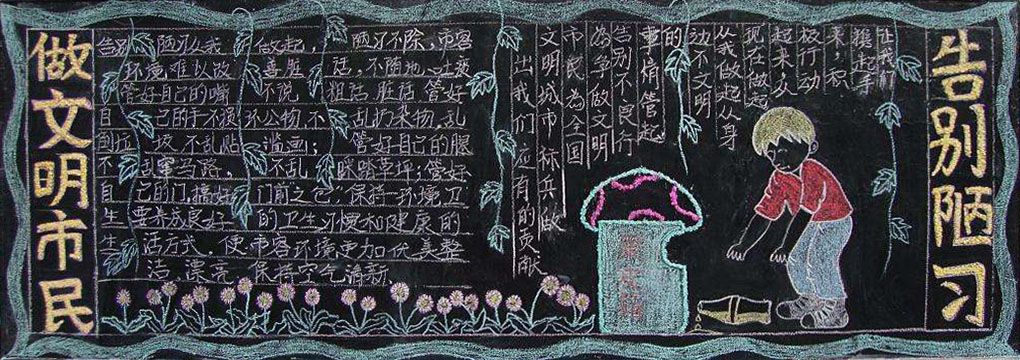 告别陋习
让我们
携起手
来，积
极行动
起来么
现在做起
从我做起从身
边不文明
的
事情管起
告别不良行
為争做文明
市民為全国
文明城市标兵做
出我们应有的贡献
告别陋习从我做起，陋习不除，市容
环境难以改善脏话，不随地吐痰
管好自己的嘴不说粗话脏话管好
自己的手不损坏公物，不乱扔杂物，乱
圾，不乱贴滥画；管好自己的腿
不乱穿马路，不乱踩踏草坪；管好
自己的门，搞好门前之包"保持环境卫
生要养成良好的卫生习惯和健康的
生活方式，使市容环境更加优美整
洁漂亮保持空气清新
做文明市民